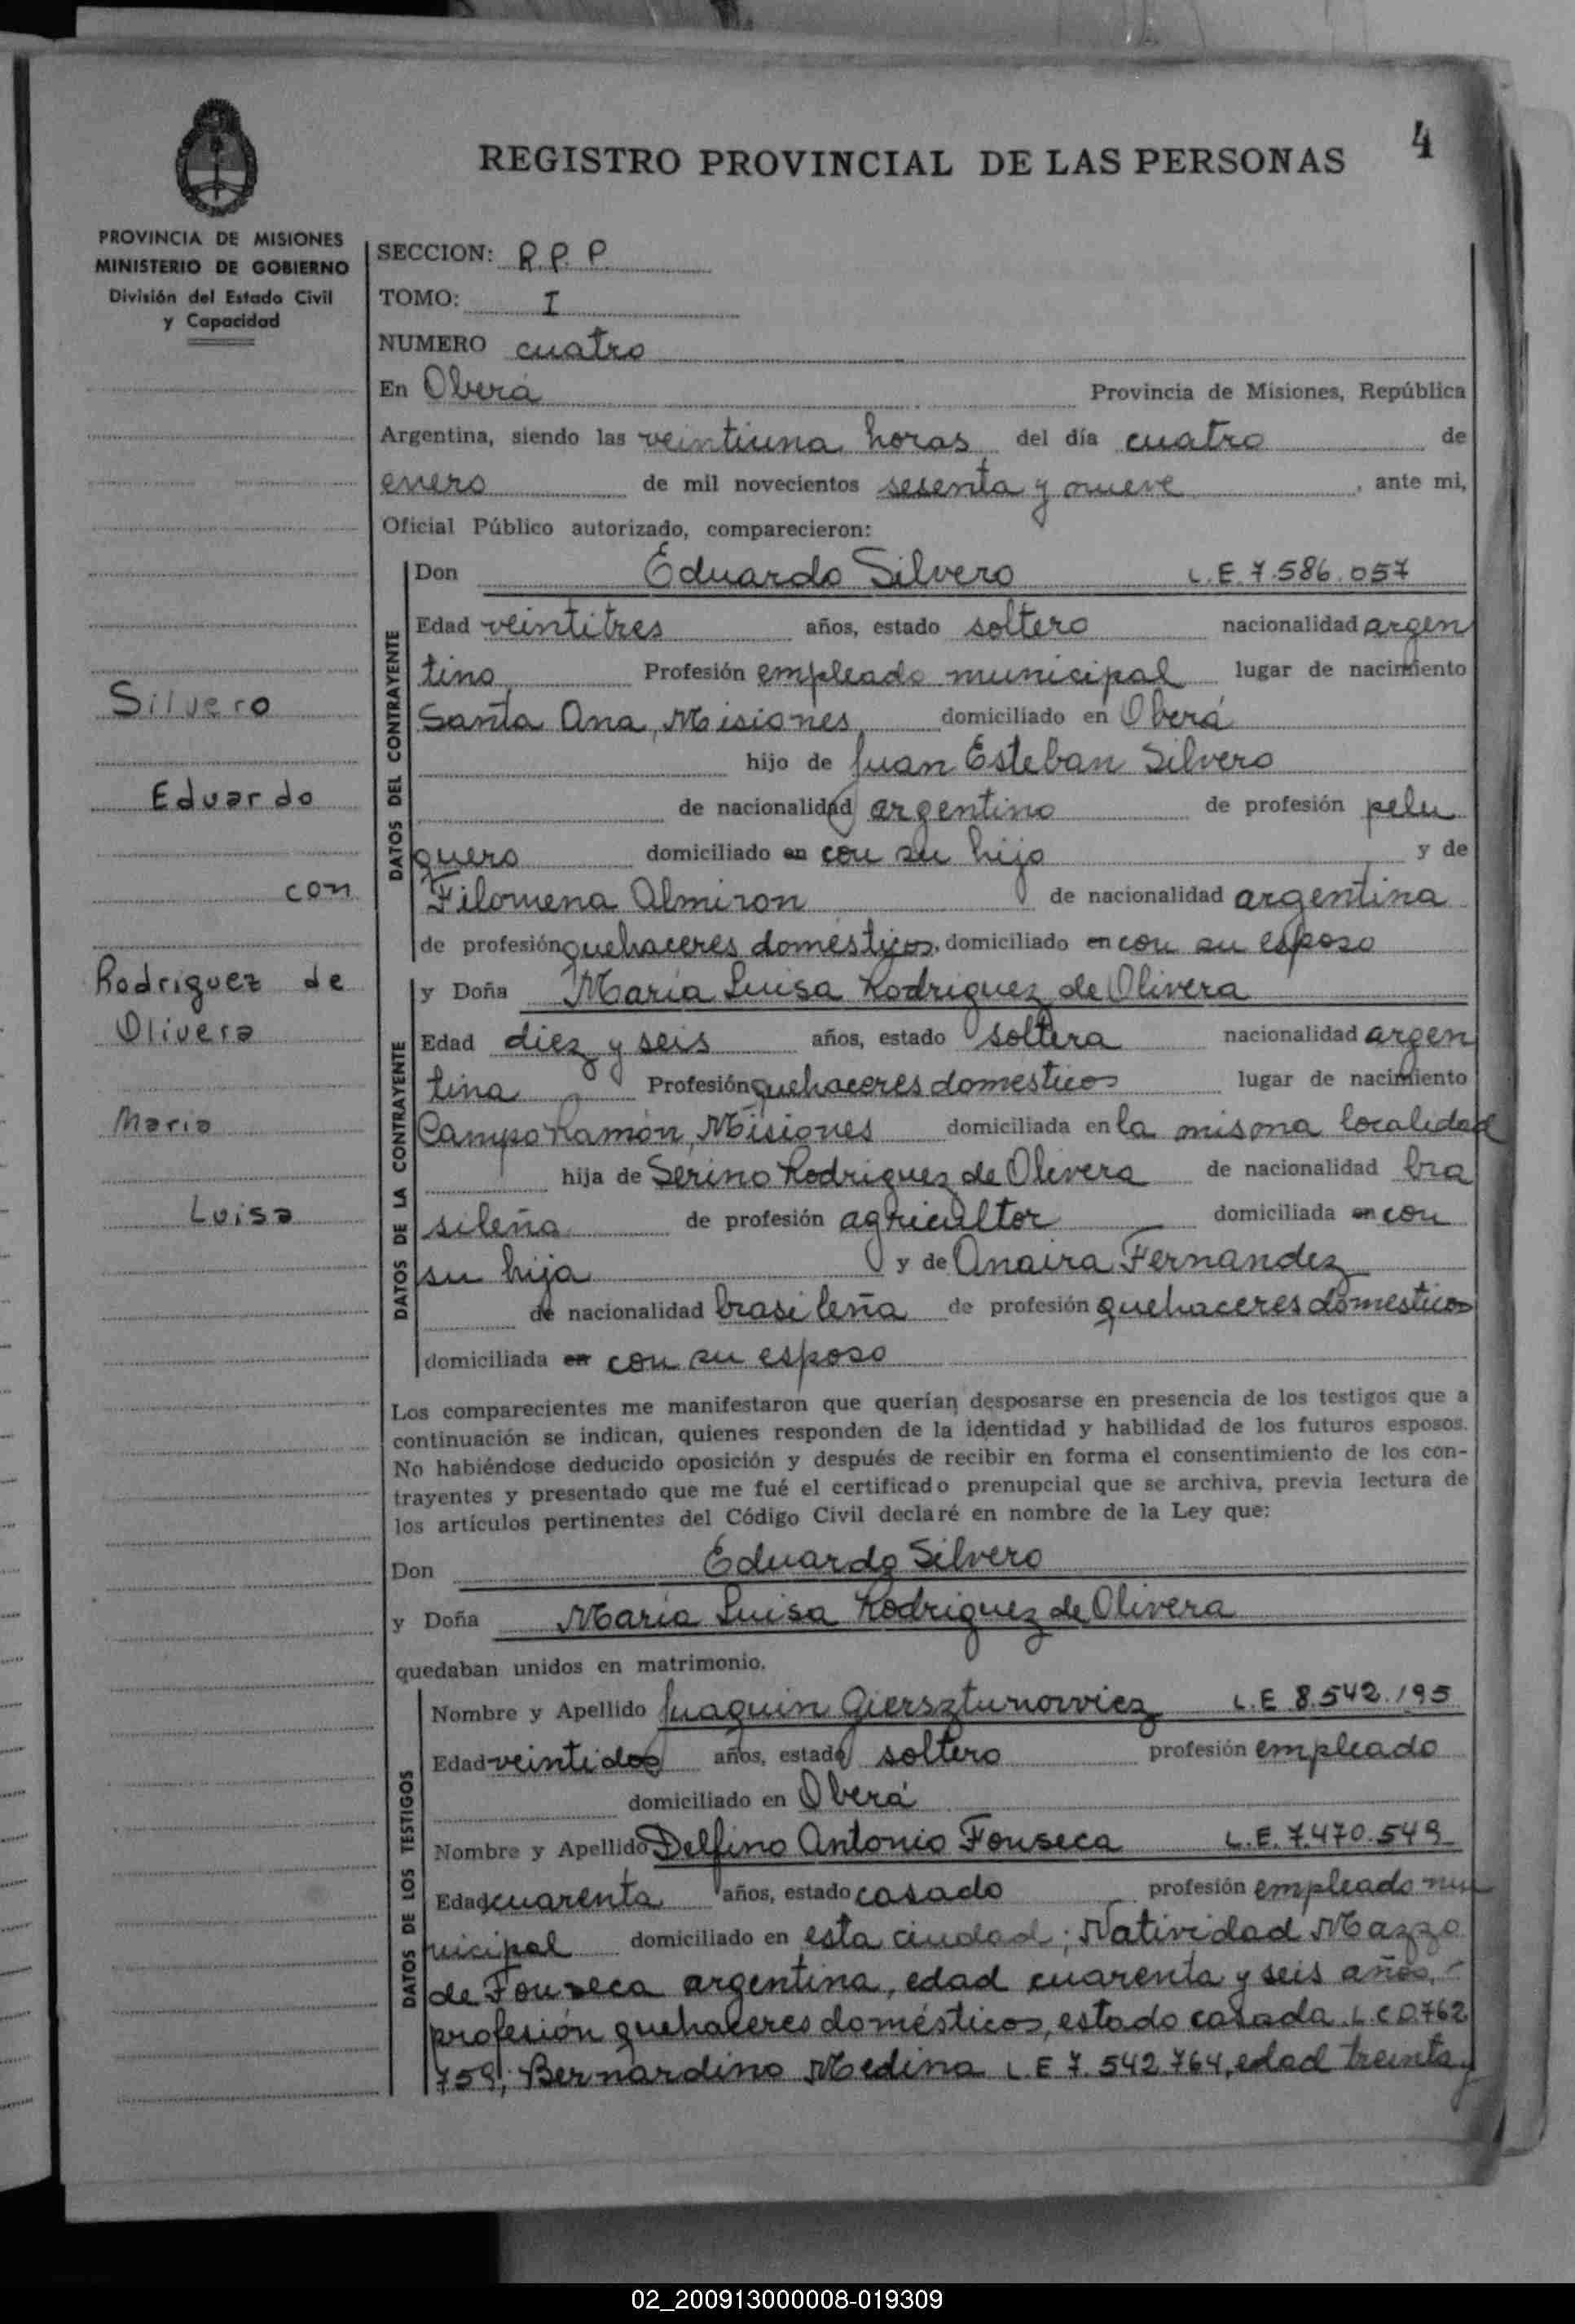 4
REGISTRO PROVINCIAL DE LAS PERSONAS
PROVINCIA DE MISIONES
MINISTERIO DE GOBIERNO
División del Estado Civil
y Capacidad
Silvero
Eduardo
con
Rodriguez de
Olivera
Maria
Luisa
SECCION: R.P.P.
TOMO: I
NUMERO cuatro
En Oberá Provincia de Misiones, República
Argentina, siendo las veintiuna horas del día cuatro de
enero de mil novecientos sesenta y nueve, ante mi,
Oficial Público autorizado, comparecieron:
DATOS DEL CONTRAYENTE
Don Eduardo Silvero L.E. 7.586.057
Edad veintitres años, estado soltero nacionalidad argen
tino Profesión empleado municipal lugar de nacimiento
Santa Ana, Misiones domiciliado en Oberá
hijo de Juan Esteban Silvero
de nacionalidad argentino de profesión pelu
quero domiciliado en con su hijo y de
Filomena Almiron de nacionalidad argentina
de profesión quehaceres domésticos, domiciliado en con su esposo
DATOS DE LA CONTRAYENTE
y Doña María Luisa Rodriguez de Olivera
Edad diez y seis años, estado soltera nacionalidad argen
tina Profesión quehaceres domesticos lugar de nacimiento
Campo Ramón, Misiones domiciliada en la misma localidad
hija de Serino Rodriguez de Olivera de nacionalidad bra
sileña de profesión agricultor domiciliada en con
su hija y de Anaira Fernandez
de nacionalidad brasileña de profesión quehaceres domesticos
domiciliada en con su esposo
Los comparecientes me manifestaron que querían desposarse en presencia de los testigos que a
continuación se indican, quienes responden de la identidad y habilidad de los futuros esposos.
No habiéndose deducido oposición y después de recibir en forma el consentimiento de los con-
trayentes y presentado que me fué el certificado prenupcial que se archiva, previa lectura de
los artículos pertinentes del Código Civil declaré en nombre de la Ley que:
Don Eduardo Silvero
y Doña María Luisa Rodriguez de Olivera
quedaban unidos en matrimonio.
DATOS DE LOS TESTIGOS
Nombre y Apellido Juaquin Giersztunovvicz L.E 8.542.195
Edad veintidos años, estado soltero profesión empleado
domiciliado en Oberá
Nombre y Apellido Delfino Antonio Fonseca L.E. 7.470.549
Edad cuarenta años, estado casado profesión empleado mu
nicipal domiciliado en esta ciudad; Natividad Mazzo
de Fonseca argentina, edad cuarenta y seis años, -
profesión quehaceres domésticos, estado casada L.C 0.762
759; Bernardino Medina L.E 7.542.764, edad treinta y
02_200913000008-019309